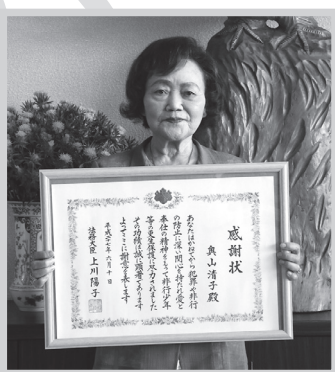 感謝状
奥山清子殿
あなたはかねてから犯罪や非行
の防止に深い関心を持たれ愛と
奉仕の精神をもって非行少年
等の更生保護に尽力されました
その功績は誠に顕著であります
よってここに謝意を表します
平成二十七年六月十日
法務大臣 上川陽子